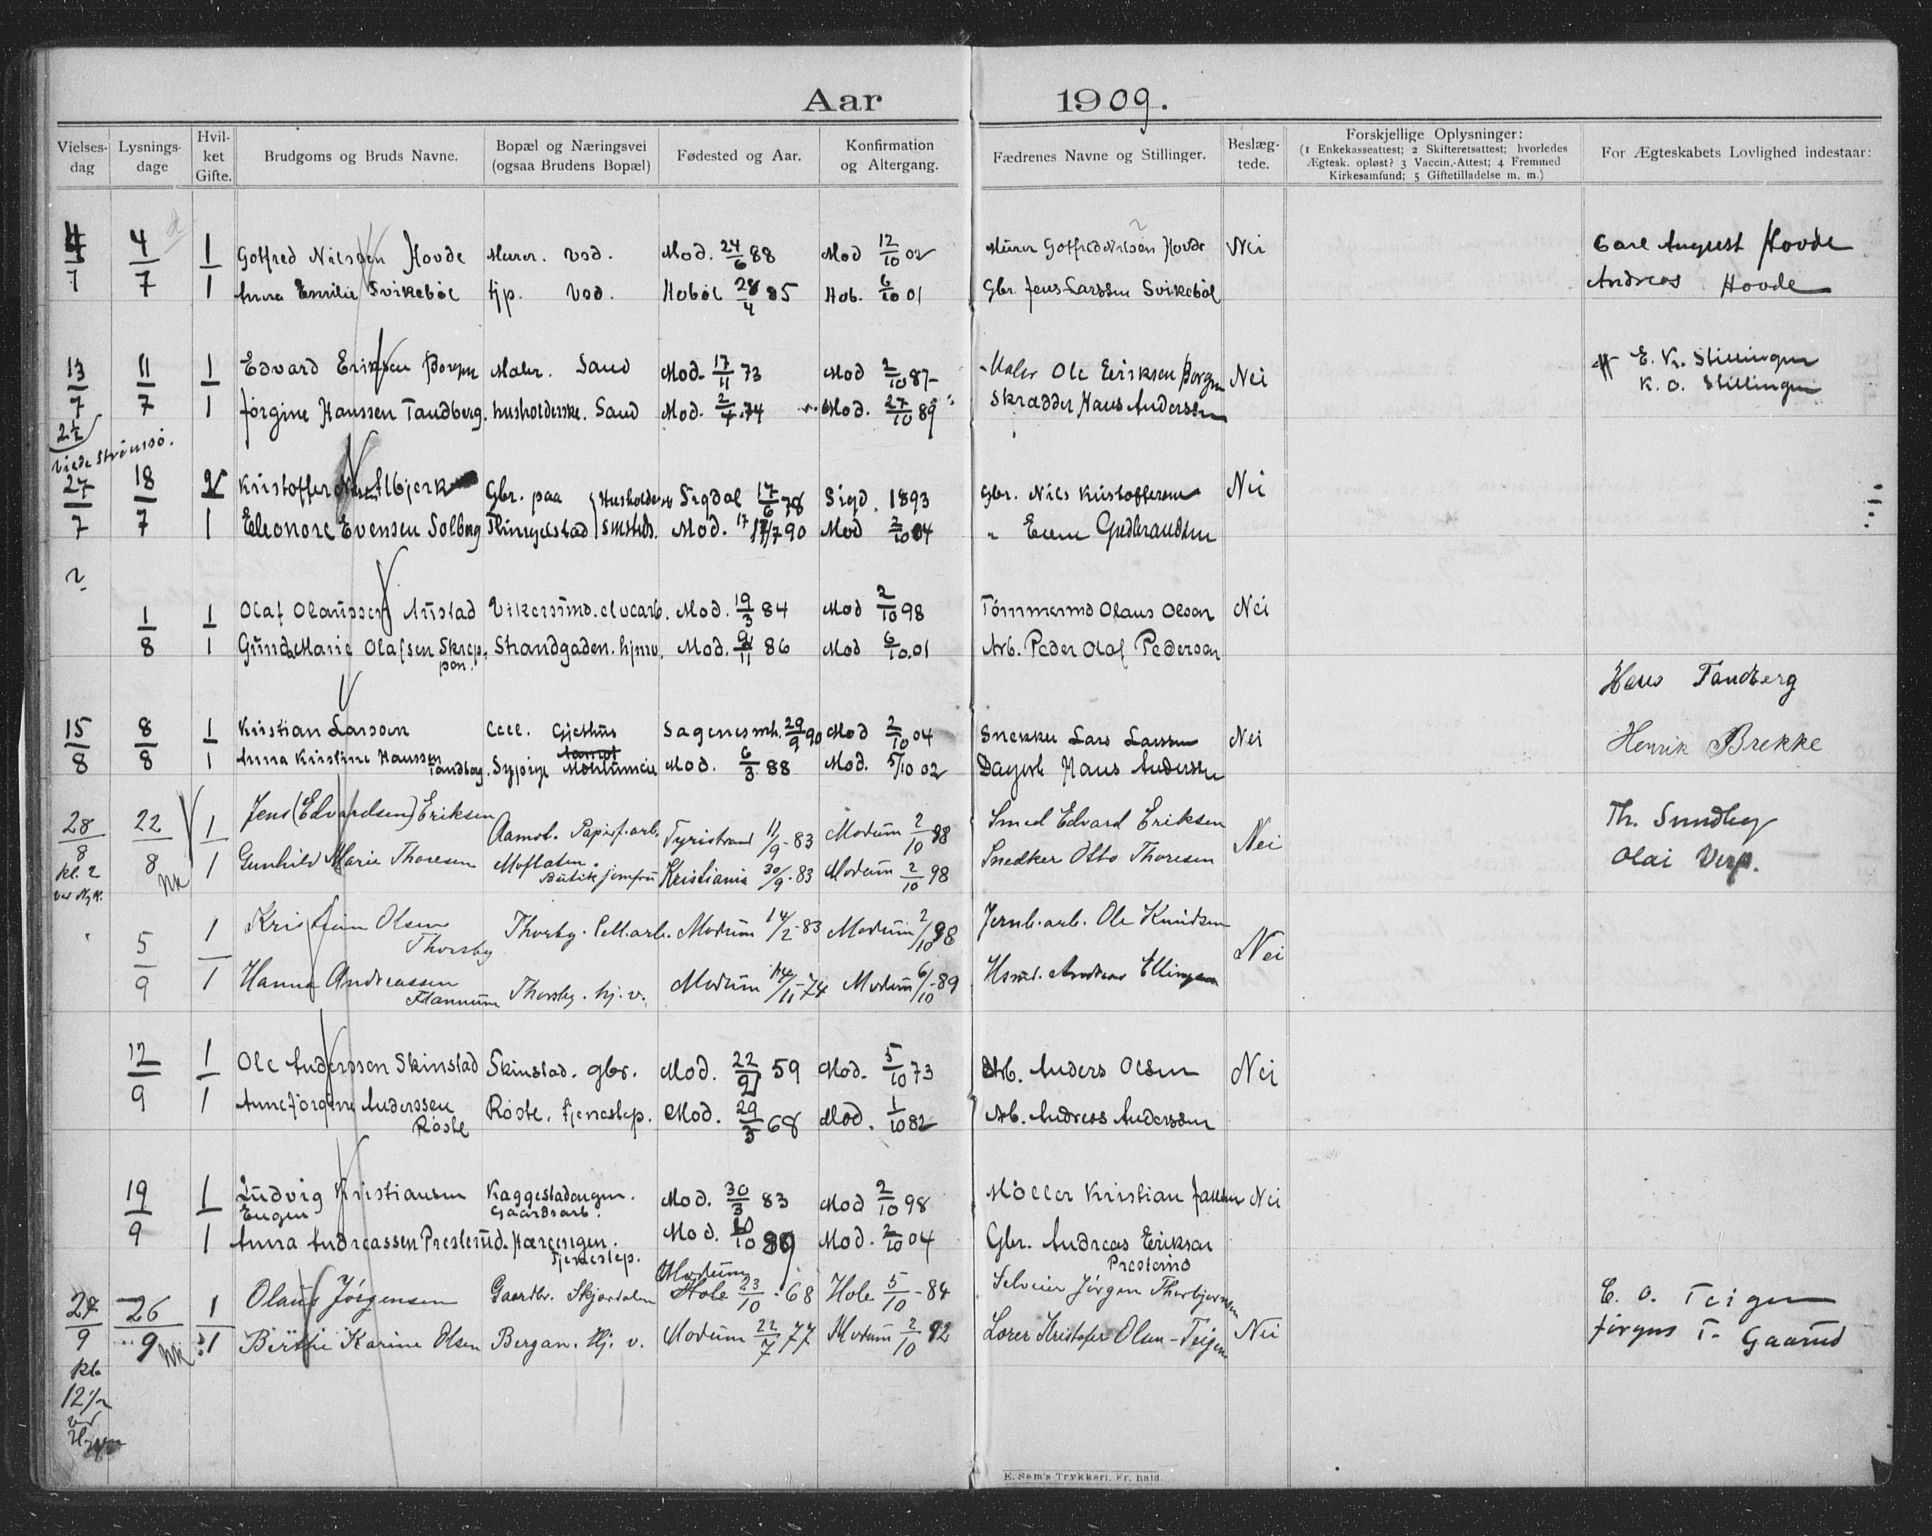 Aar 1909.
Vielses-dag Lysnings-dage Hvilket Gifte. Brudgoms og Bruds Navne. Bopæl og Næringsvei (ogsaa Brudens Bopæl) Fødested og Aar. Konfirmation og Altergang. Fædrenes Navne og Stillinger. Beslæg-tede. Forskjellige Oplysninger: (1 Enkekasseattest; 2 Skifteretsattest; hvorledes Ægtesk. opløst? 3 Vaccin.-Attest; 4 Fremmed Kirkesamfund; 5 Giftetilladelse m. m.) For Ægteskabets Lovlighed indestaar:
4/7 4/7 1 Gotfred Nilssen Hovde Murer. Vod. Mod. 24/6 88 Mod 12/10 02 Murer Gotfred Nilsen Hovde Nei Carl August Hovde
1 Anna Emilie Svikebøl Hj. Vod. Hobøl 28/4 85 Hob. 6/10 01 Gbr. Jens Larssen Svikebøl Andreas Hovde
13/7 11/7 1 Edvard Eriksen Borgen Maler. Sand Mod. 17/11 73 Mod 2/10 87 Maler Ole Eriksen Borgen Nei E. Kr. Stillingen
1 Jørgine Hanssen Tandberg. husholderske. Sand Mod. 2/4 74 Mod. 27/10 89 Skrædder Hans Anderssen K. O. Stillingen
Viede Strømsø.
27/7 18/7 2 Kristoffer Albjerk Gbr. paa Husholderske Sigdal 17/6 78 Sigd. 1893 Gbr. Nils Kristoffersen Nei
1 Eleonore Evensen Solberg Thingelstad smsteds. Mod. 17/7 90 Mod 2/10 04 " Even Gudbrandsen
1/8 1 Olaf Olaussen Austad Vikersund. elvearb. Mod. 19/3 84 Mod 2/10 98 Tømmermd Olaus Olsen Nei
1 Gunda Marie Olafsen Skreppen. Strandgaden. hjmv. Mod. 9/11 86 Mod 6/10 01 Arb. Peder Olaf Pederson
Hans Tandberg
15/8 8/8 1 Kristian Larsson Cell. Gjethus Sagenes mh. 29/9 90 Mod 2/10 04 Snekker Lars Larssen Nei Henrik Brekke
1 Anna Kristine Hanssen Tandbag. Sypige Mod. 6/3 88 Mod. 5/10 02 Dagarb Hans Anderssen
28/8 22/8 1 Jens (Edvardsen) Eriksen Aamot. Papirf.arb. Tyristrand 11/9-83 Modum 2/10 98 Smed Edvard Eriksen Nei Th. Sundby
kl. 2 1 Gunhild Marie Thoresen Moflaten. Butikjomfru Kristiania 30/9-83 Modum 2/10 98 Snedker Otto Thoresen Olai Verp.
5/9 1 Kristian Olsen Thorsby Thorsby. Cell.arb. Modum 14/2-83 Modum 2/10 98 Jernb.arb. Ole Knudsen Nei
1 Hanna Andreassen Flannum Thorsby. hj. v. Modum 14/11-74 Modum 6/10-89 Hsml. Andreas Ellingsen
12/9 1 Ole Anderssen Skinstad Skinstad. gbr. Mod. 22/9 59 Mod. 5/10 73 Arb. Anders Olsen Nei
1 Anne Jørgine Anderssen Røste Røste. tjenestep. Mod. 29/3 68 Mod. 1/10 82 Arb. Andreas Anderssen
19/9 1 Ludvig Kristiansen Engen Kaggestadengen. Gaardsarb. Mod. 30/3 83 Mod 2/10 98 Møller Kristian Jansen Nei
1 Anna Andreassen Presterud. Hærengen. Tjenestep. Mod. 10/10 89 Mod. 2/10 04 Gbr. Andreas Eriksen Presterud
27/9 26/9 1 Olaus Jørgensen Gaardbr. Skjordalen Modum Hole 23/10-68 Hole 5/10-84 Selveier Jørgen Thorbjørnsen E. O. Teigen
kl. 1 Birthe Karine Olsen Bergan. Hj. v. Modum 22/7 77 Modum 2/10 92 Lærer Kristofer Olsen-Teigen Nei Jørgen T. Gaarud
12½
E. Sem's Trykkeri, Fr. hald.